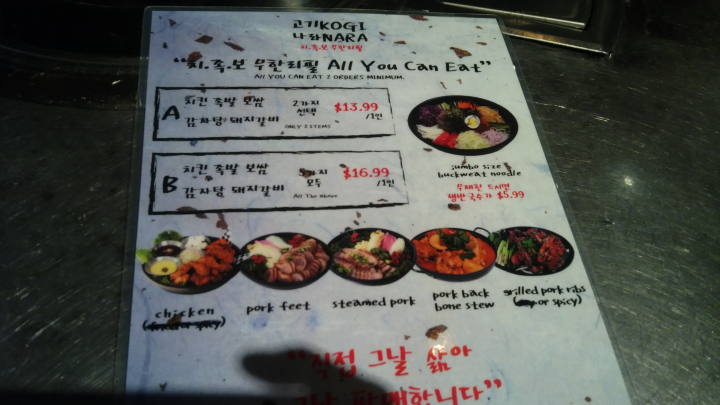 고기KOGI
나라NARA
치.족.보 무한리필
"치.족.보 무한리필 All You Can Eat"
All YOU CAN EAT 2 ORDERS MINIMUM.
A
치킨 족발 보쌈
감자탕 돼지갈비
2가지
선택
ONLY 2 ITEMS
$13.99
/1인
B
치킨 족발 보쌈
감자탕 돼지갈비
5가지
모두
All The Above
$16.99
/1인
jumbo size
buckweat noodle
무제한 드시면
쟁반국수가 $5.99
chicken
or spicy)
pork feet
steamed pork
pork back
bone stew
grilled pork ribs
or spicy)
"직접 그날 삶아
판매합니다"